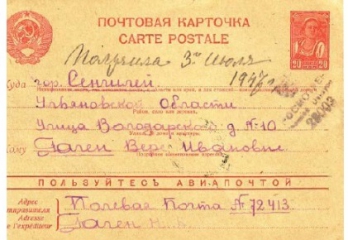 ПОЧТОВАЯ КАРТОЧКА
CARTE POSTALE
20 20
3го Июля
194
Куда гор. Сенгилей
Ульяновской Области
Улица Володарского д №10.
Кому Гаген Вере Ивановне
ПОЛЬЗУЙТЕСЬ АВИАПОЧТОЙ
Адрес
отправителя
Adresse
de l'expéditeur
Полевая Почта №72413
Гаген